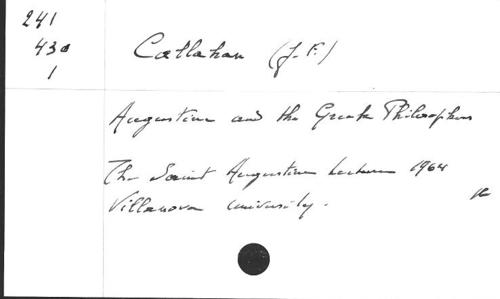 241
430
1
Callahan (J. F.)
Augustine and the Greek Philosophers
The Saint Augustine Lecture 1964
Villanova University.